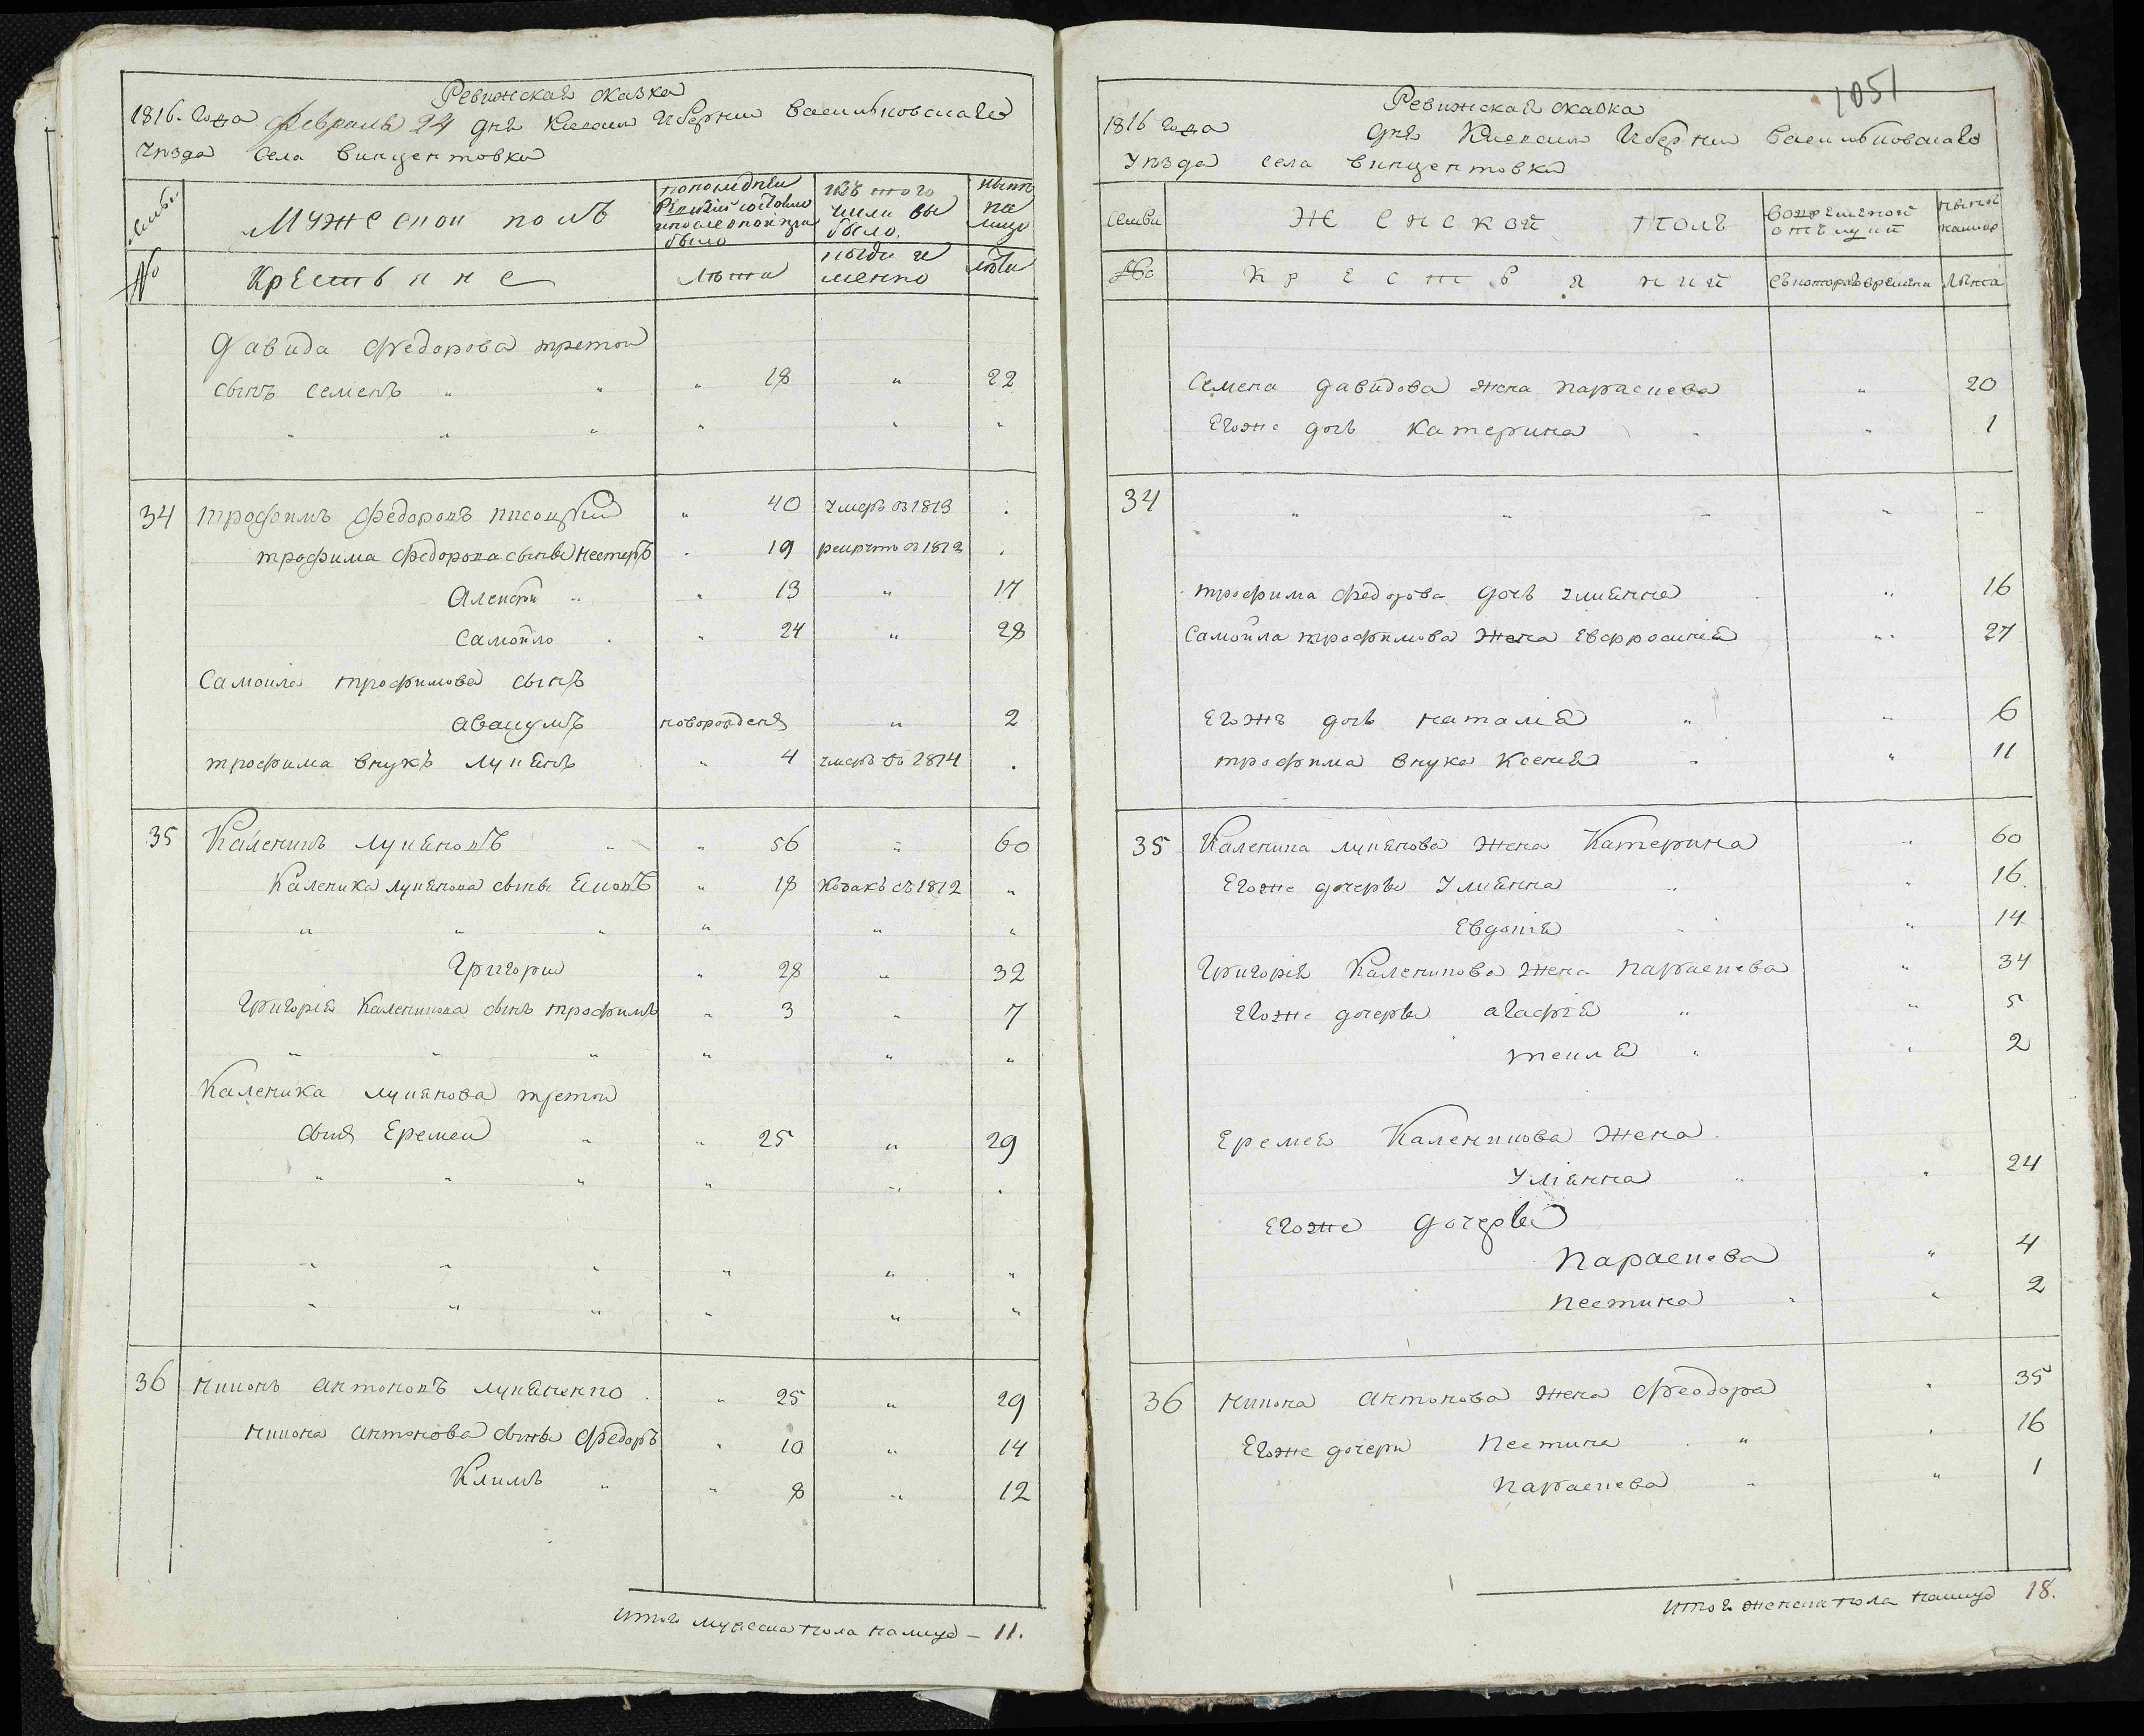 Ревижская сказка
1816. года февраля 24 дня Киевской Губернии Васильковскаго
уѣзда села Винцентовки
семьи
Мужеской полъ
по последней ревизіи состояло и после оной прибыло
изъ того числа выбыло
нынѣ на лицо
№
Крестьяне
лѣта
когда именно
лѣта
Давида Федорова третой
сынъ Семенъ " " " 18 " 22
" " " " " "
34 Трофимъ Федоровъ " 40 умеръ въ 1813 .
Трофима Федорова сыны Нестеръ . 19 рекрутъ въ 1812 .
Алексѣй " " 13 " 17
Самойло . " 24 " 28
Самойла Трофимова сынъ
Авакумъ новорожденъ " 2
Трофима внукъ Лукянъ " 4 умеръ въ 1814 .
35 Каленикъ Лукяновъ " " 56 " 60
Каленика Лукянова сыны " 18 Козакъ съ 1812 "
" " " " " "
Григорий " 28 " 32
Григорія Каленикова сынъ Трофимъ " 3 " 7
" " " " " "
Каленика Лукянова третой
сынъ Еремей " " 25 " 29
" " " " " .
" " " " " "
" " " " " "
36 Никонъ Антоновъ Лукяненко . " 25 " 29
Никона Антонова сыны Федоръ " 10 " 14
Климъ " " 8 " 12
Итого мужеска пола налицо – 11.
1051
Ревижская сказка
1816 года дня Киевской Губернии Васильковскаго
уѣзда села Винцентовки
семьи
Женской полъ
во временной отлучкѣ
нынѣ налицо
№
Крестьяний
съ котораго времени
лѣта
Семена Давидова жена Параскева " 20
Егоже дочь Катерина " " 1
34 " " " " "
Трофима Федорова дочь Улианна " 16
Самойла Трофимова жена Евфросиния " 27
Егожъ дочь Наталия " " 6
Трофима внука Ксения " " 11
35 Каленика Лукянова жена Катерина " 60
Егоже дочеры Улианна " " 16
Евдокія " " 14
Григорія Каленикова жена Параскева " 34
Егоже дочеры Агафія " " 5
Текля " " 2
Еремея Каленикова жена
Улианна " " 24
Егоже дочеры
Параскева " 4
Пестина " " 2
36 Никона Антонова жена Феодора " 35
Егоже дочери Пестина " " 16
Параскева " " 1
Итого женска пола налицо 18.